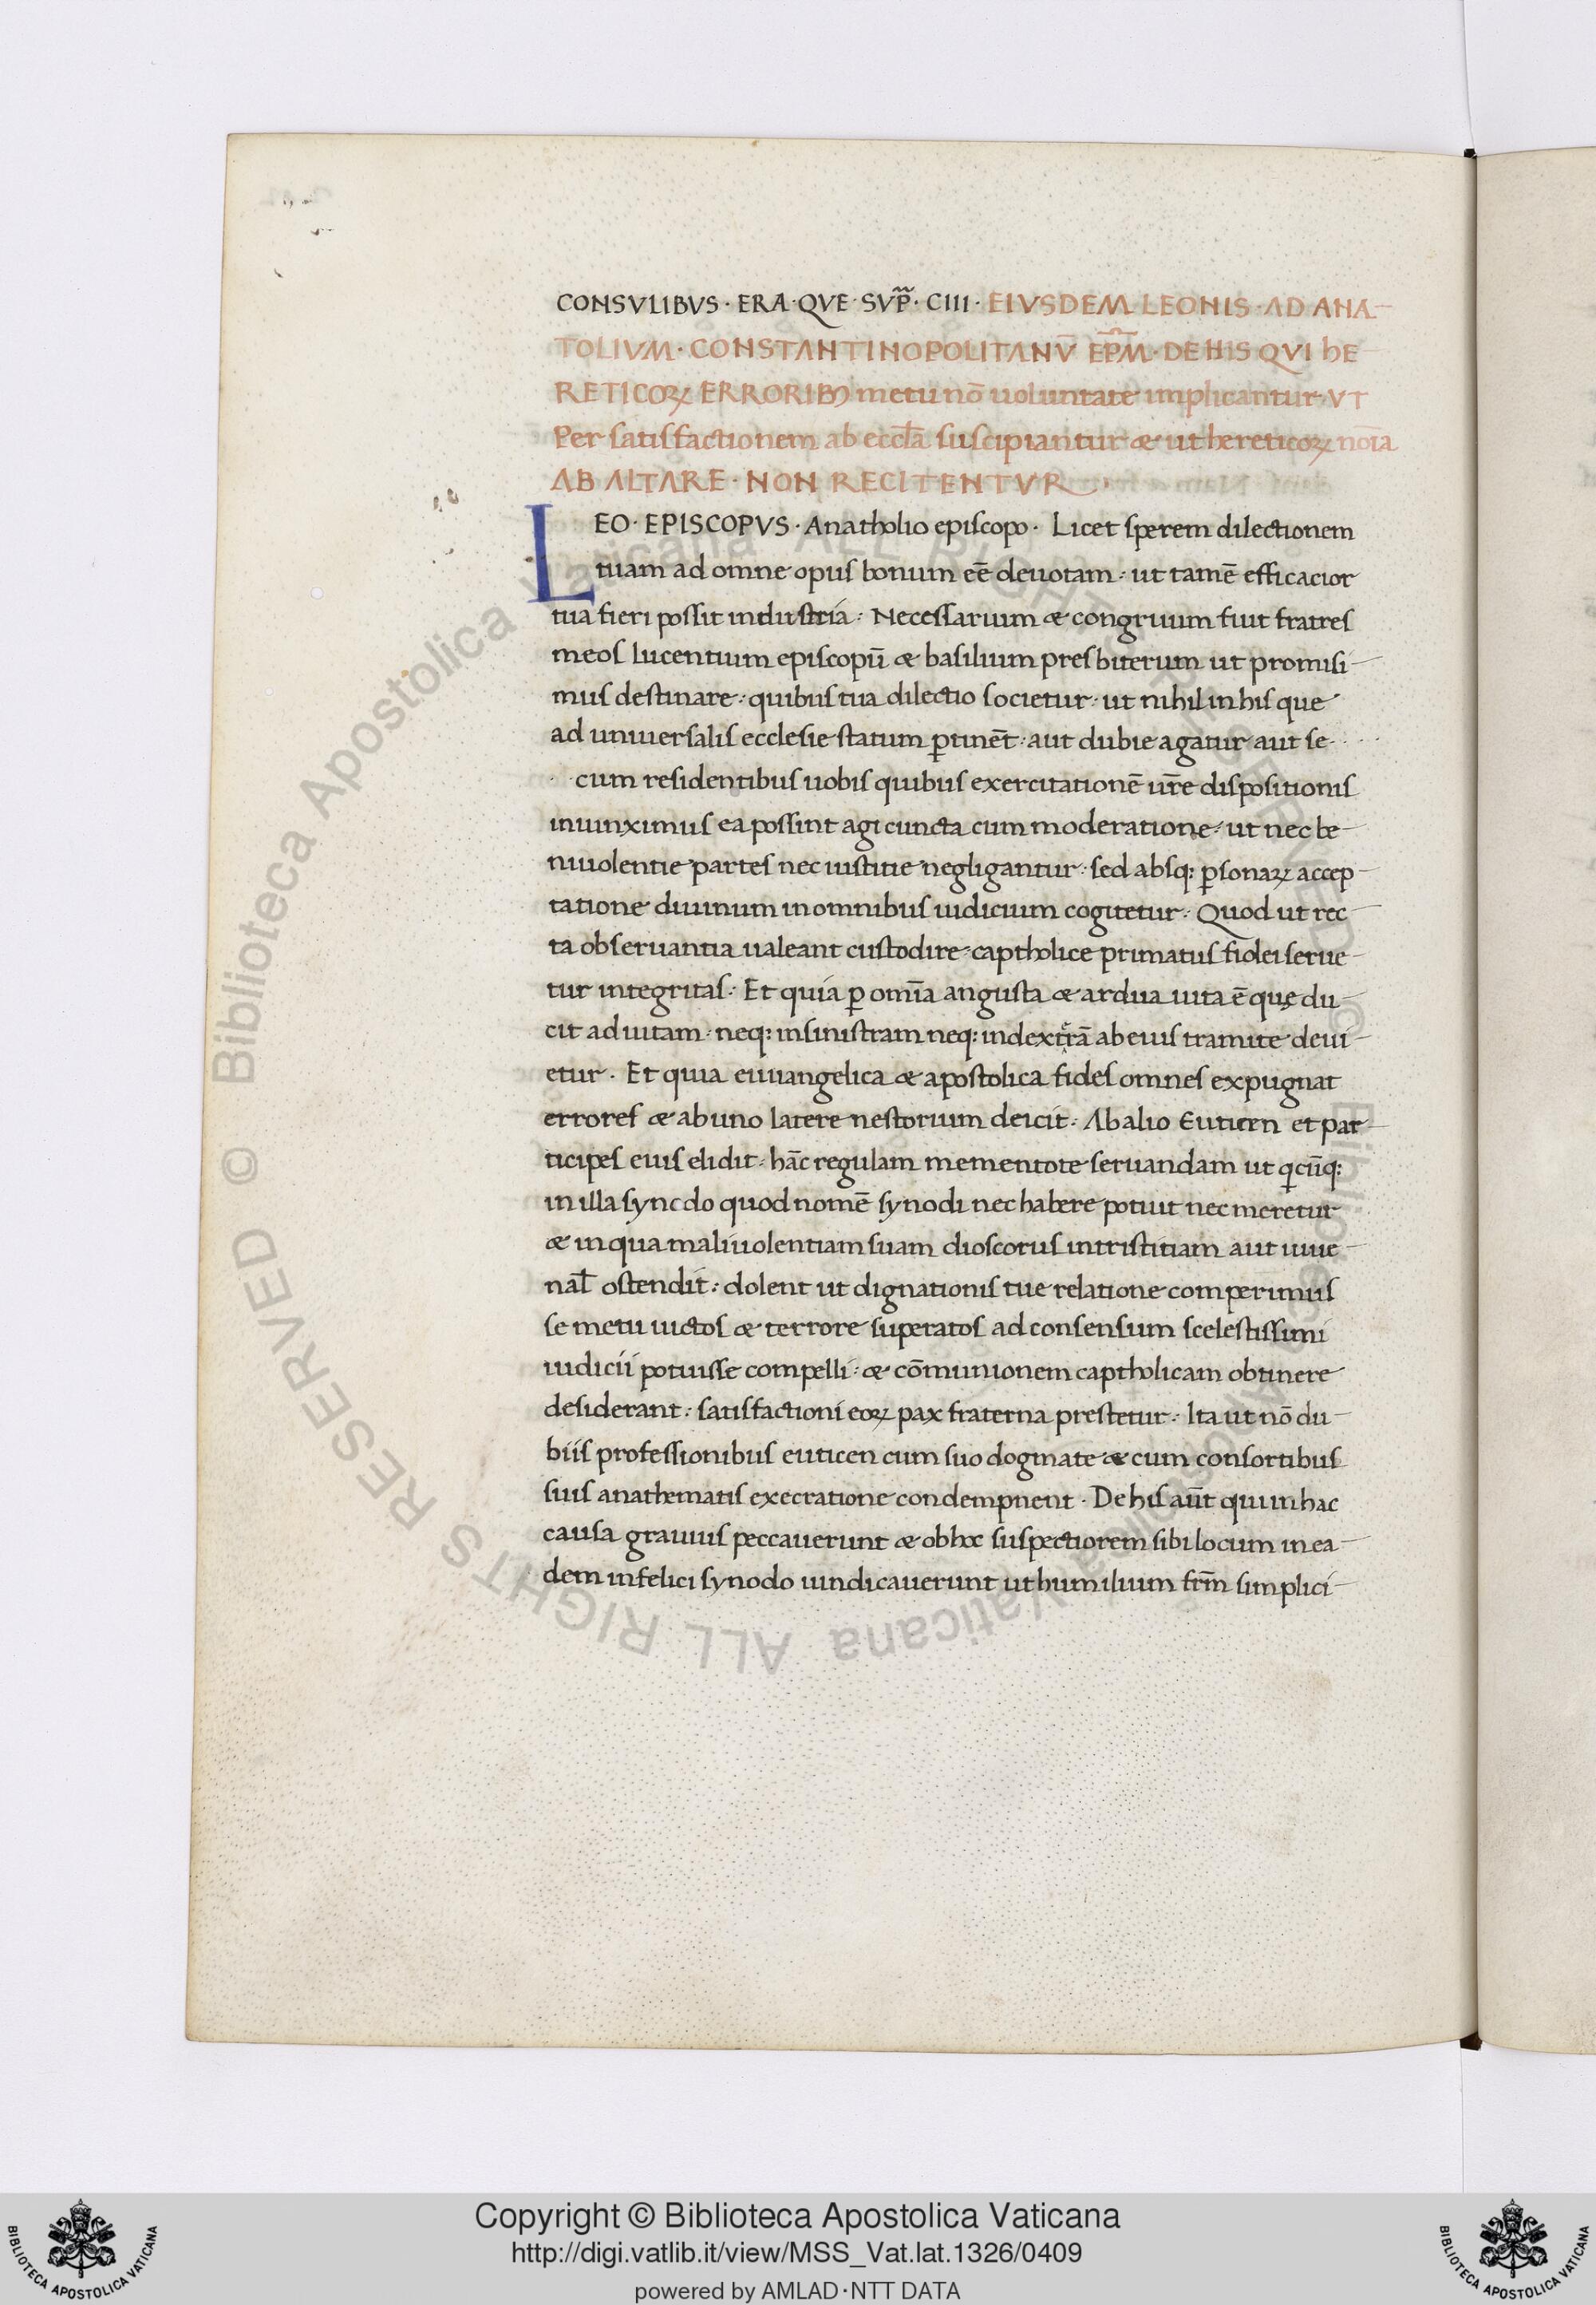 CONSVLIBVS · ERA · QVE · SVP̃ · CIII · EIVSDEM LEONIS · AD ANA-
TOLIVM · CONSTANTINOPOLITANV̄ EP̄M · DE HIS QVI hE
RETICOꝜ ERRORIB; metu nō uoluntate implicantur VT
Per satisfactionem ab eccl̄a suscipiantur & ut hereticoꝝ noīa
AB ALTARE · NON RECITENTVR
LEO · EPISCOPVS · Anatholio episcopo · Licet sperem dilectionem
tuam ad omne opus bonum eē deuotam · ut tamē efficacior
tua fieri possit industria · Necessarium & congruum fuit fratres
meos lucentium episcopū & basilium presbiterum ut promisi-
mus destinare · quibus tua dilectio societur · ut nihil in his que
ad uniuersalis ecclesie statum ꝑtinēt · aut dubie agatur aut se
cum residentibus uobis quibus exercitationē ur̄e dispositionis
iniunximus ea possint agi cuncta cum moderatione · ut nec be-
niuolentie partes nec iustitie negligantur · sed absq; ꝑsonaꝝ accep-
tatione diuinum in omnibus iudicium cogitetur · Quod ut rec-
ta obseruantia ualeant custodire · captholice primatus fidei serue-
tur integritas · Et quia ꝑ omīa angusta & ardua uita ē quę du-
cit ad uitam · neq; in sinistram neq; in dextrā ab eius tramite deui-
etur · Et quia euuangelica & apostolica fides omnes expugnat
errores & ab uno latere nestorium deicit · Ab alio Euticen et par-
ticipes eius elidit · hāc regulam mementote seruandam ut q̄cūq;
in illa syncdo quod nomē synodi nec habere potuit nec meretur
& in qua maliuolentiam suam dioscorus intristitiam aut iuue-
nal̄ ostendit · dolent ut dignationis tue relatione comperimus
se metu uictos & terrore superatos ad consensum scelestissimi
iudicii potuisse compelli · & cōmunionem captholicam obtinere
desiderant · satisfactioni eoꝝ pax fraterna prestetur · Ita ut nō du-
biis professionibus euticen cum suo dogmate & cum consortibus
suis anathematis execratione condempnent · De his aūt qui in hac
causa grauius peccauerunt & ob hoc suspectiorem sibi locum in ea-
dem infelici synodo uindicauerunt ut humilium fr̄m simplici-
Copyright © Biblioteca Apostolica Vaticana
http://digi.vatlib.it/view/MSS_Vat.lat.1326/0409
powered by AMLAD·NTT DATA
BIBLIOTECA APOSTOLICA VATICANA
BIBLIOTECA APOSTOLICA VATICANA
© Biblioteca Apostolica Vaticana ALL RIGHTS RESERVED © Biblioteca Apostolica Vaticana ALL RIGHTS RESERVED